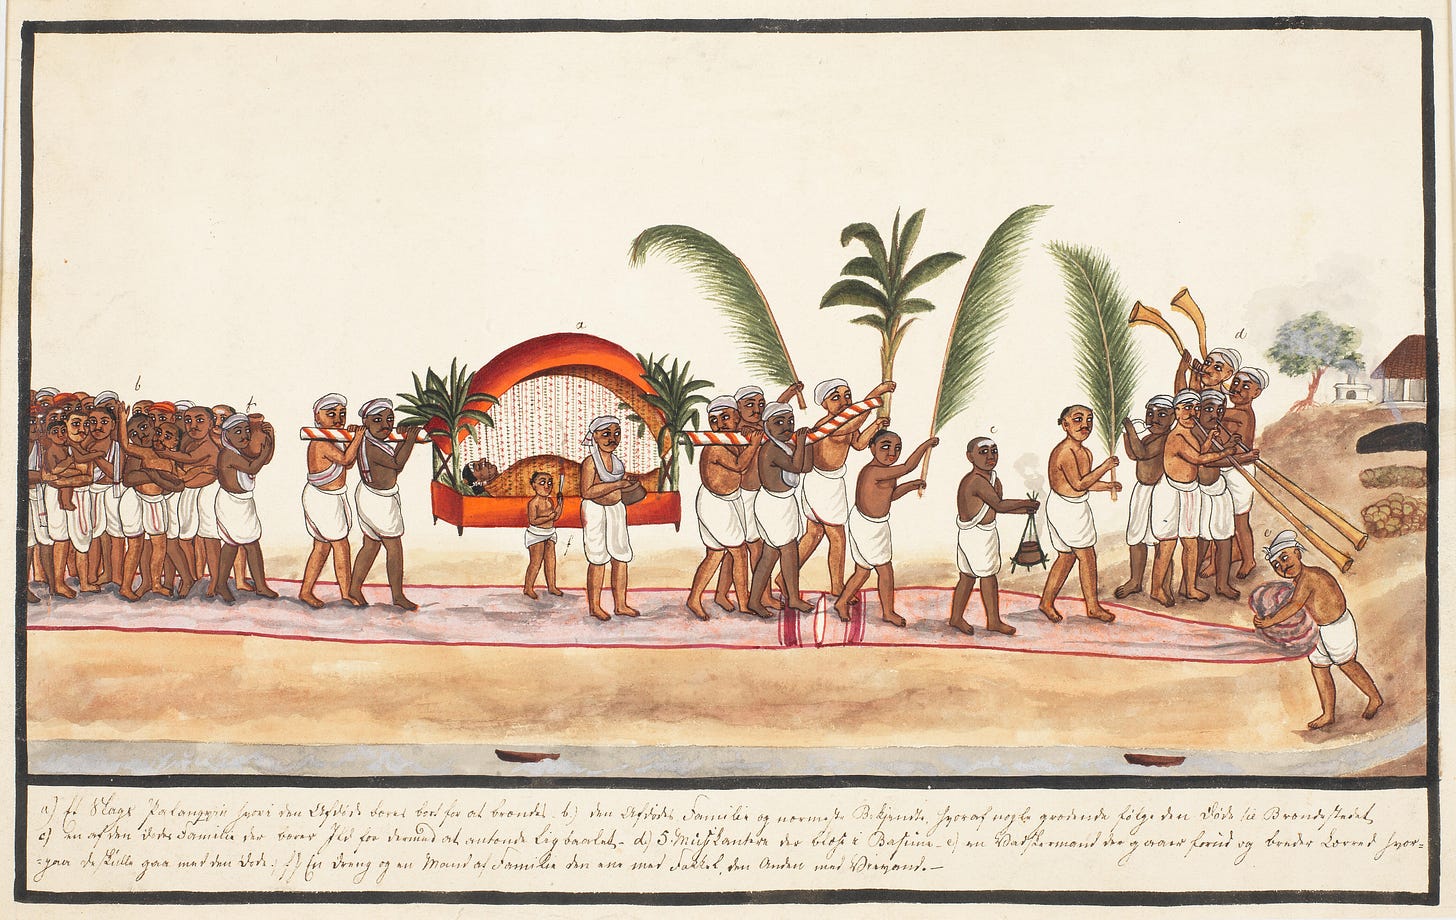 a
b
f
c
d
e
f
a) Et Slags Palanqvin hvori den Afdöde bæres bort for at brændes. b) den Afdödes Familie og nærmeste Bekjendte, hvoraf nogle grædende fölge den Döde til Brændestedet
c) en af den dödes Familie der bærer Ild for dermed at antænde Ligbaalet. d) 5 Musikantere der blæse i Basune. e) en Vaskermand der gaaer forud og breder Lærred hvor-
=paa de skulle gaa med den Döde. f) En Dreng og en Mand af Familien den ene med Fakkel, den Anden med Vievand.—